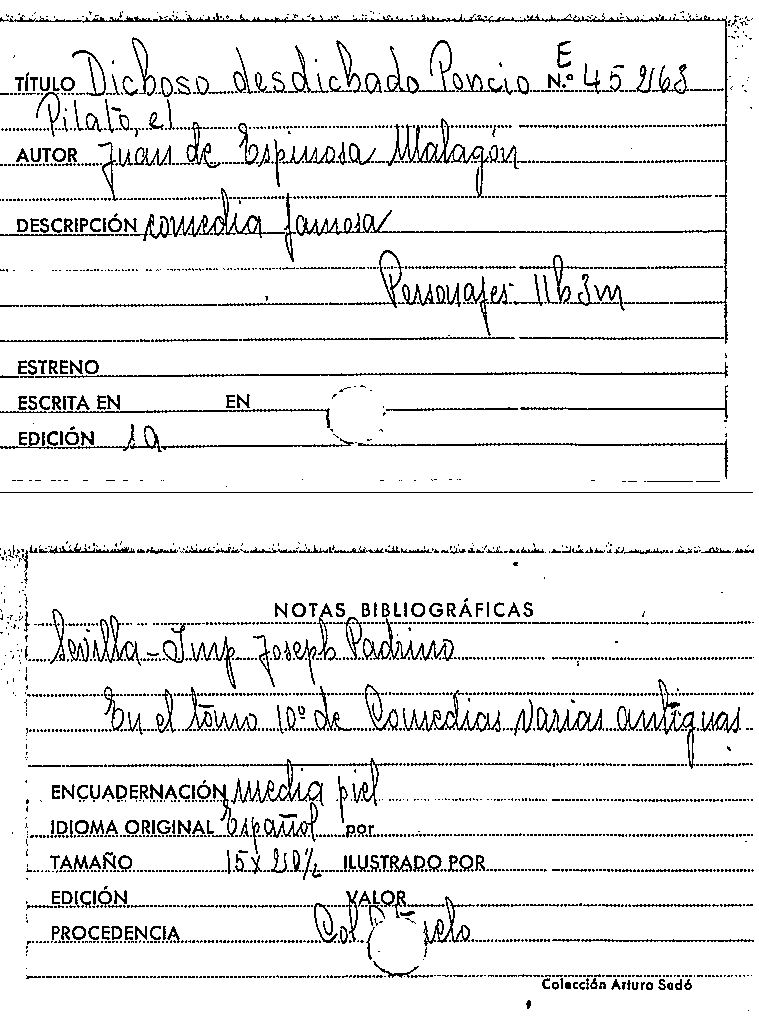 E
TÍTULO Dichoso desdichado Poncio N.º 45268
Pilato, el
AUTOR Juan de Espinosa Malagón
DESCRIPCIÓN comedia famosa
Personajes: 11h 3m
ESTRENO
ESCRITA EN EN
EDICIÓN 1a
NOTAS BIBLIOGRÁFICAS
Sevilla - Imp Joseph Padrino
En el tomo 10º de Comedias varias antiguas
ENCUADERNACIÓN media piel
IDIOMA ORIGINAL Español por
TAMAÑO 15 x ILUSTRADO POR
EDICIÓN VALOR
PROCEDENCIA Col
Colección Arturo Sedó